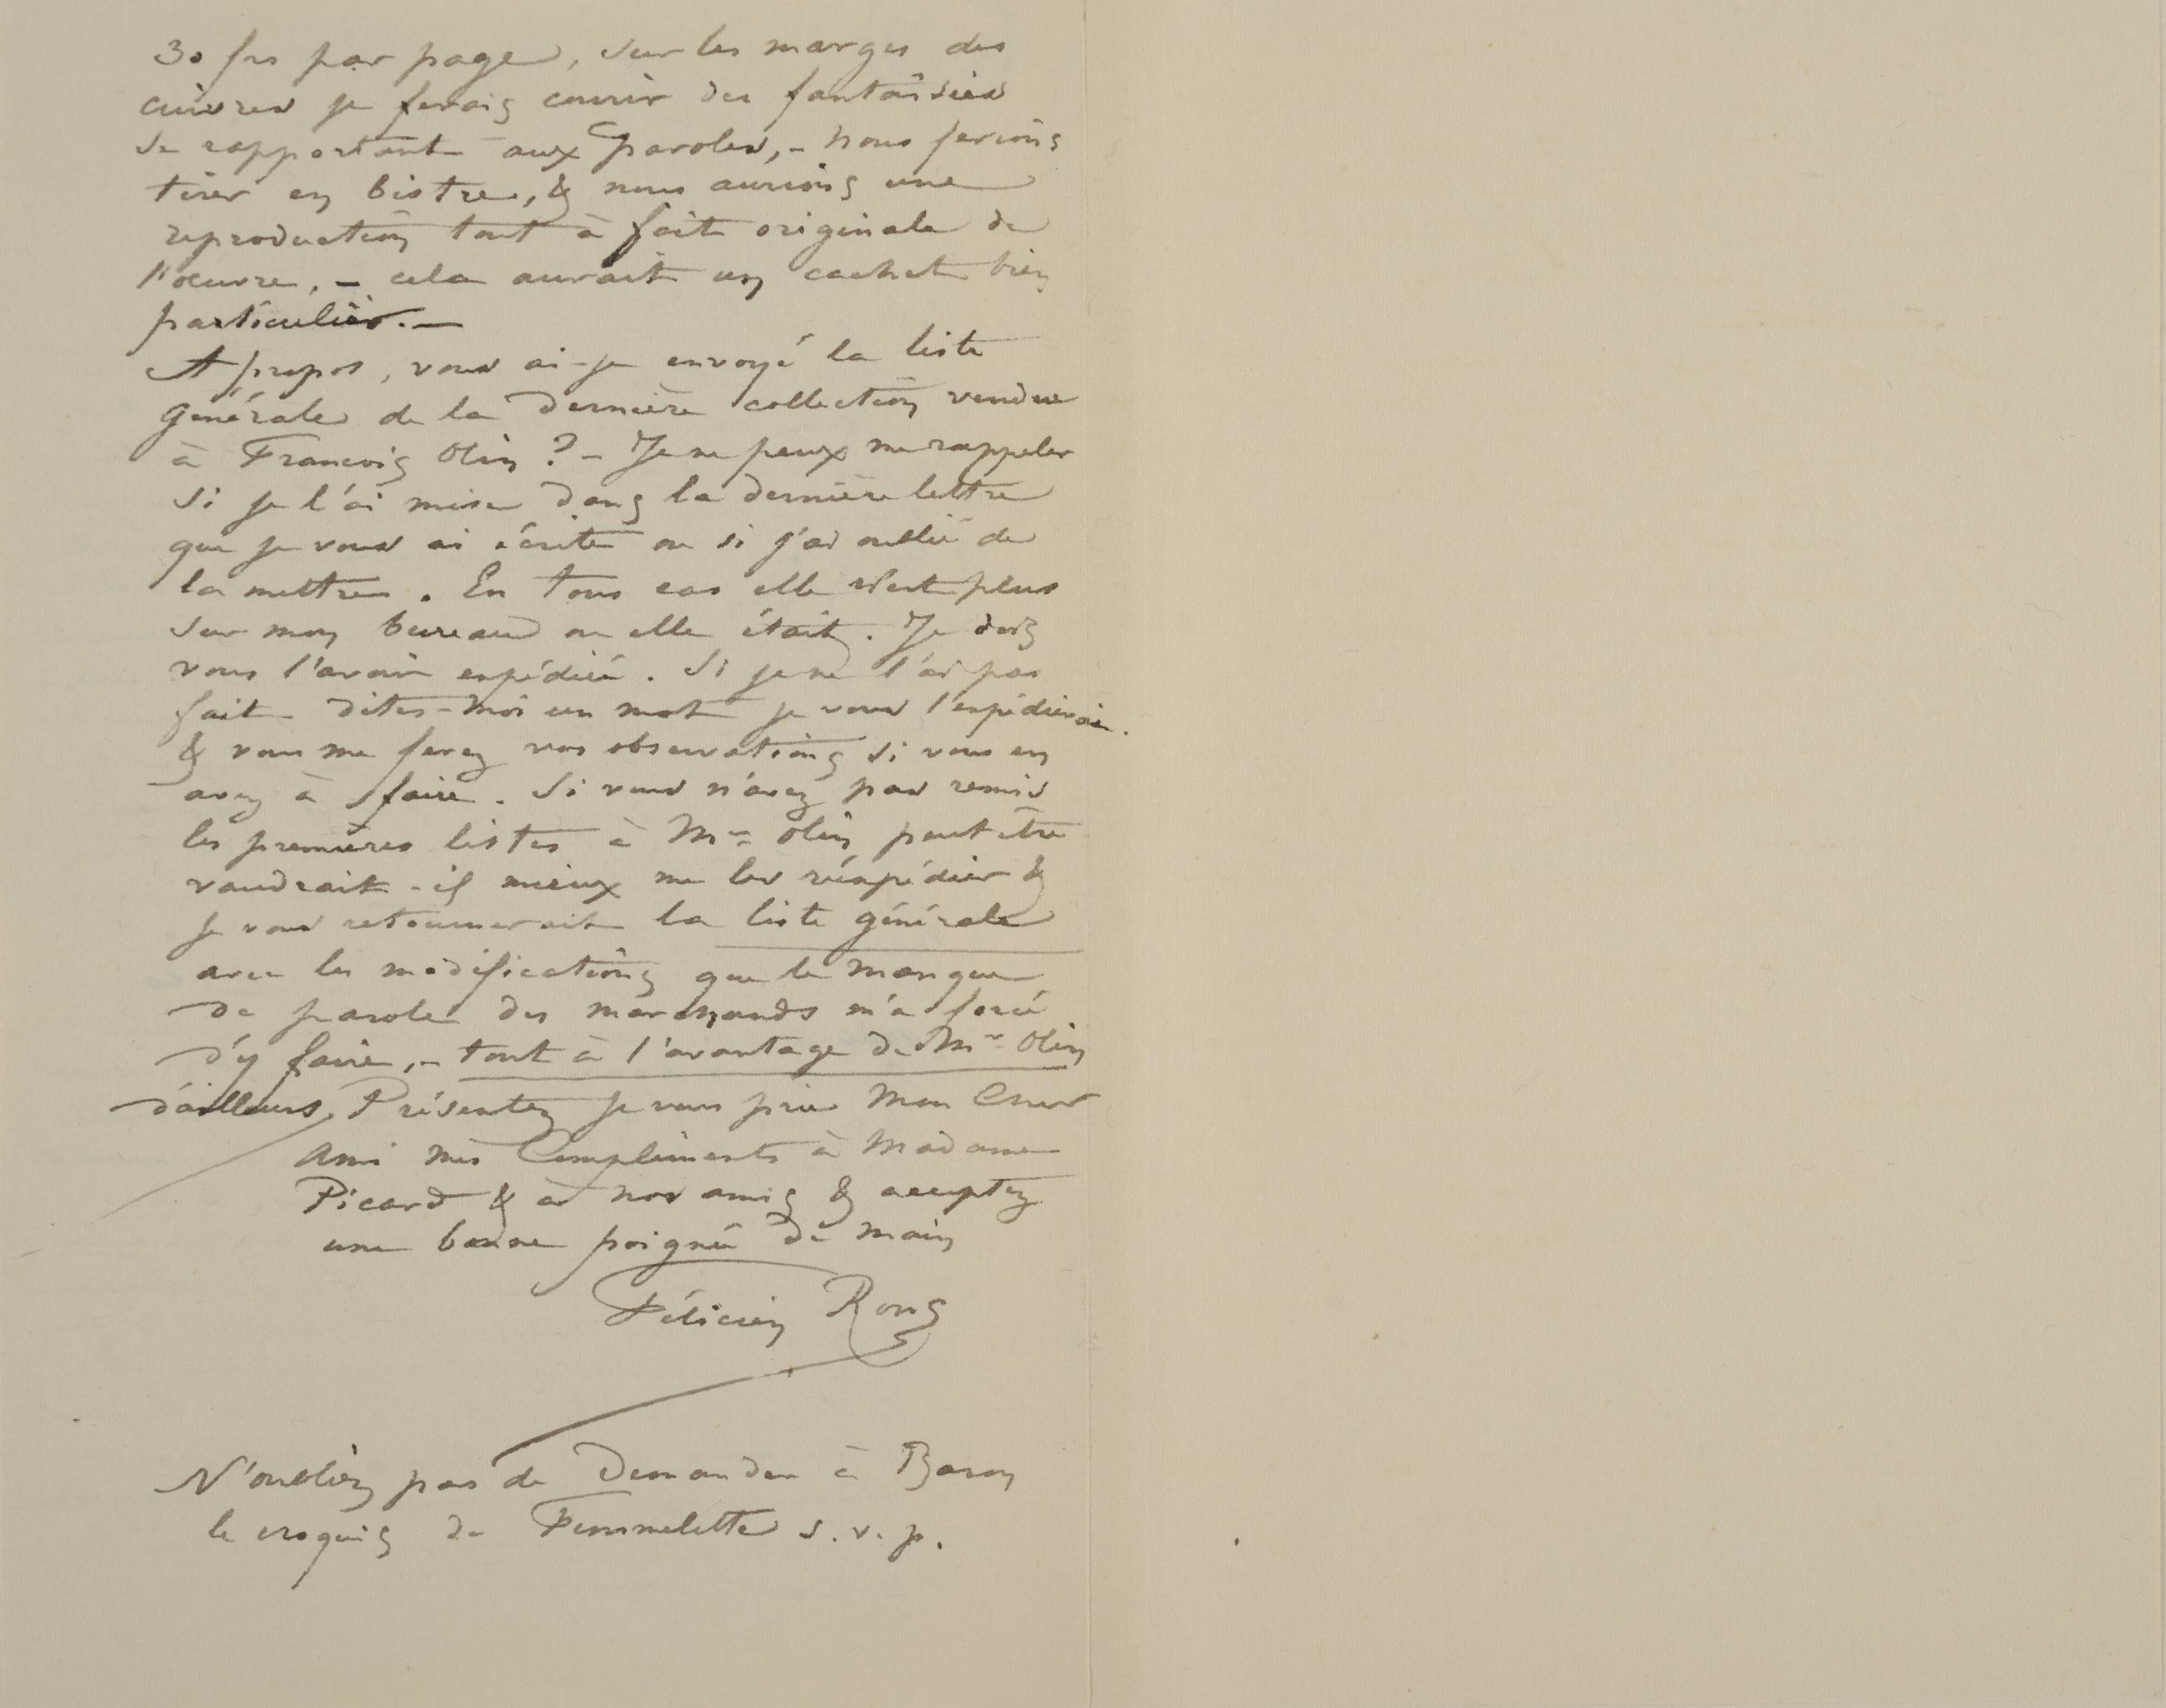 30 frs par page, sur les marges des
cuivres je ferais courir des fantaisies
se rapportant aux paroles, – nous ferions
tirer en bistre, & nous aurions une
reproduction tout à fait originale de
l'œuvre, – cela aurait un cachet bien
particulier. –
A propos, vous ai-je envoyé la liste
générale de la dernière collection vendue
à François Olin ? – Je ne peux me rappeler
si je l'ai mise dans la dernière lettre
que je vous ai écrite ou si j'ai oublié de
la mettre. En tous cas elle n'est plus
sur mon bureau ou elle était. Je dois
vous l'avoir expédiée. Si je ne l'ai pas
fait dites-moi un mot je vous l'expédierai.
& vous me ferez vos observations si vous en
avez à faire. Si vous n'avez pas remis
les premières listes à Mr Olin peut être
vaudrait-il mieux me les réexpédier &
je vous retournerait la liste générale
avec les modifications que le manque
de parole des marchands m'a forcé
d'y faire, – tout à l'avantage de Mr Olin
d'ailleurs. Présentez je vous prie Mon Cher
Ami mes Compliments à Madame
Picard & à nos amis & acceptez
une bonne poignée de main
Félicien Rops
N'oubliez pas de demander à Baron
le croquis de Femmelette s.v.p.